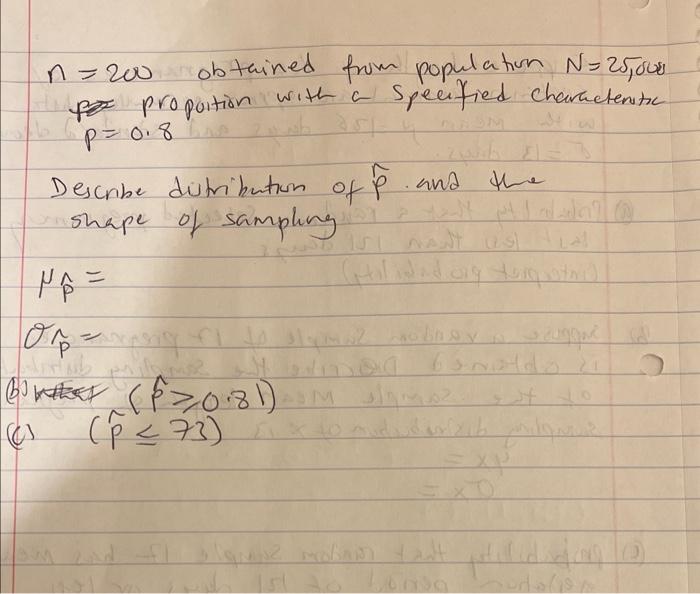 n = 200 obtained from population N = 25,000
proportion with a specified characteristic
p = 0.8
Describe distribution of p̂ and the
shape of sampling
μp̂ =
σp̂ =
(b) (p̂ ≥ 0.81)
(c) (p̂ ≤ 73)